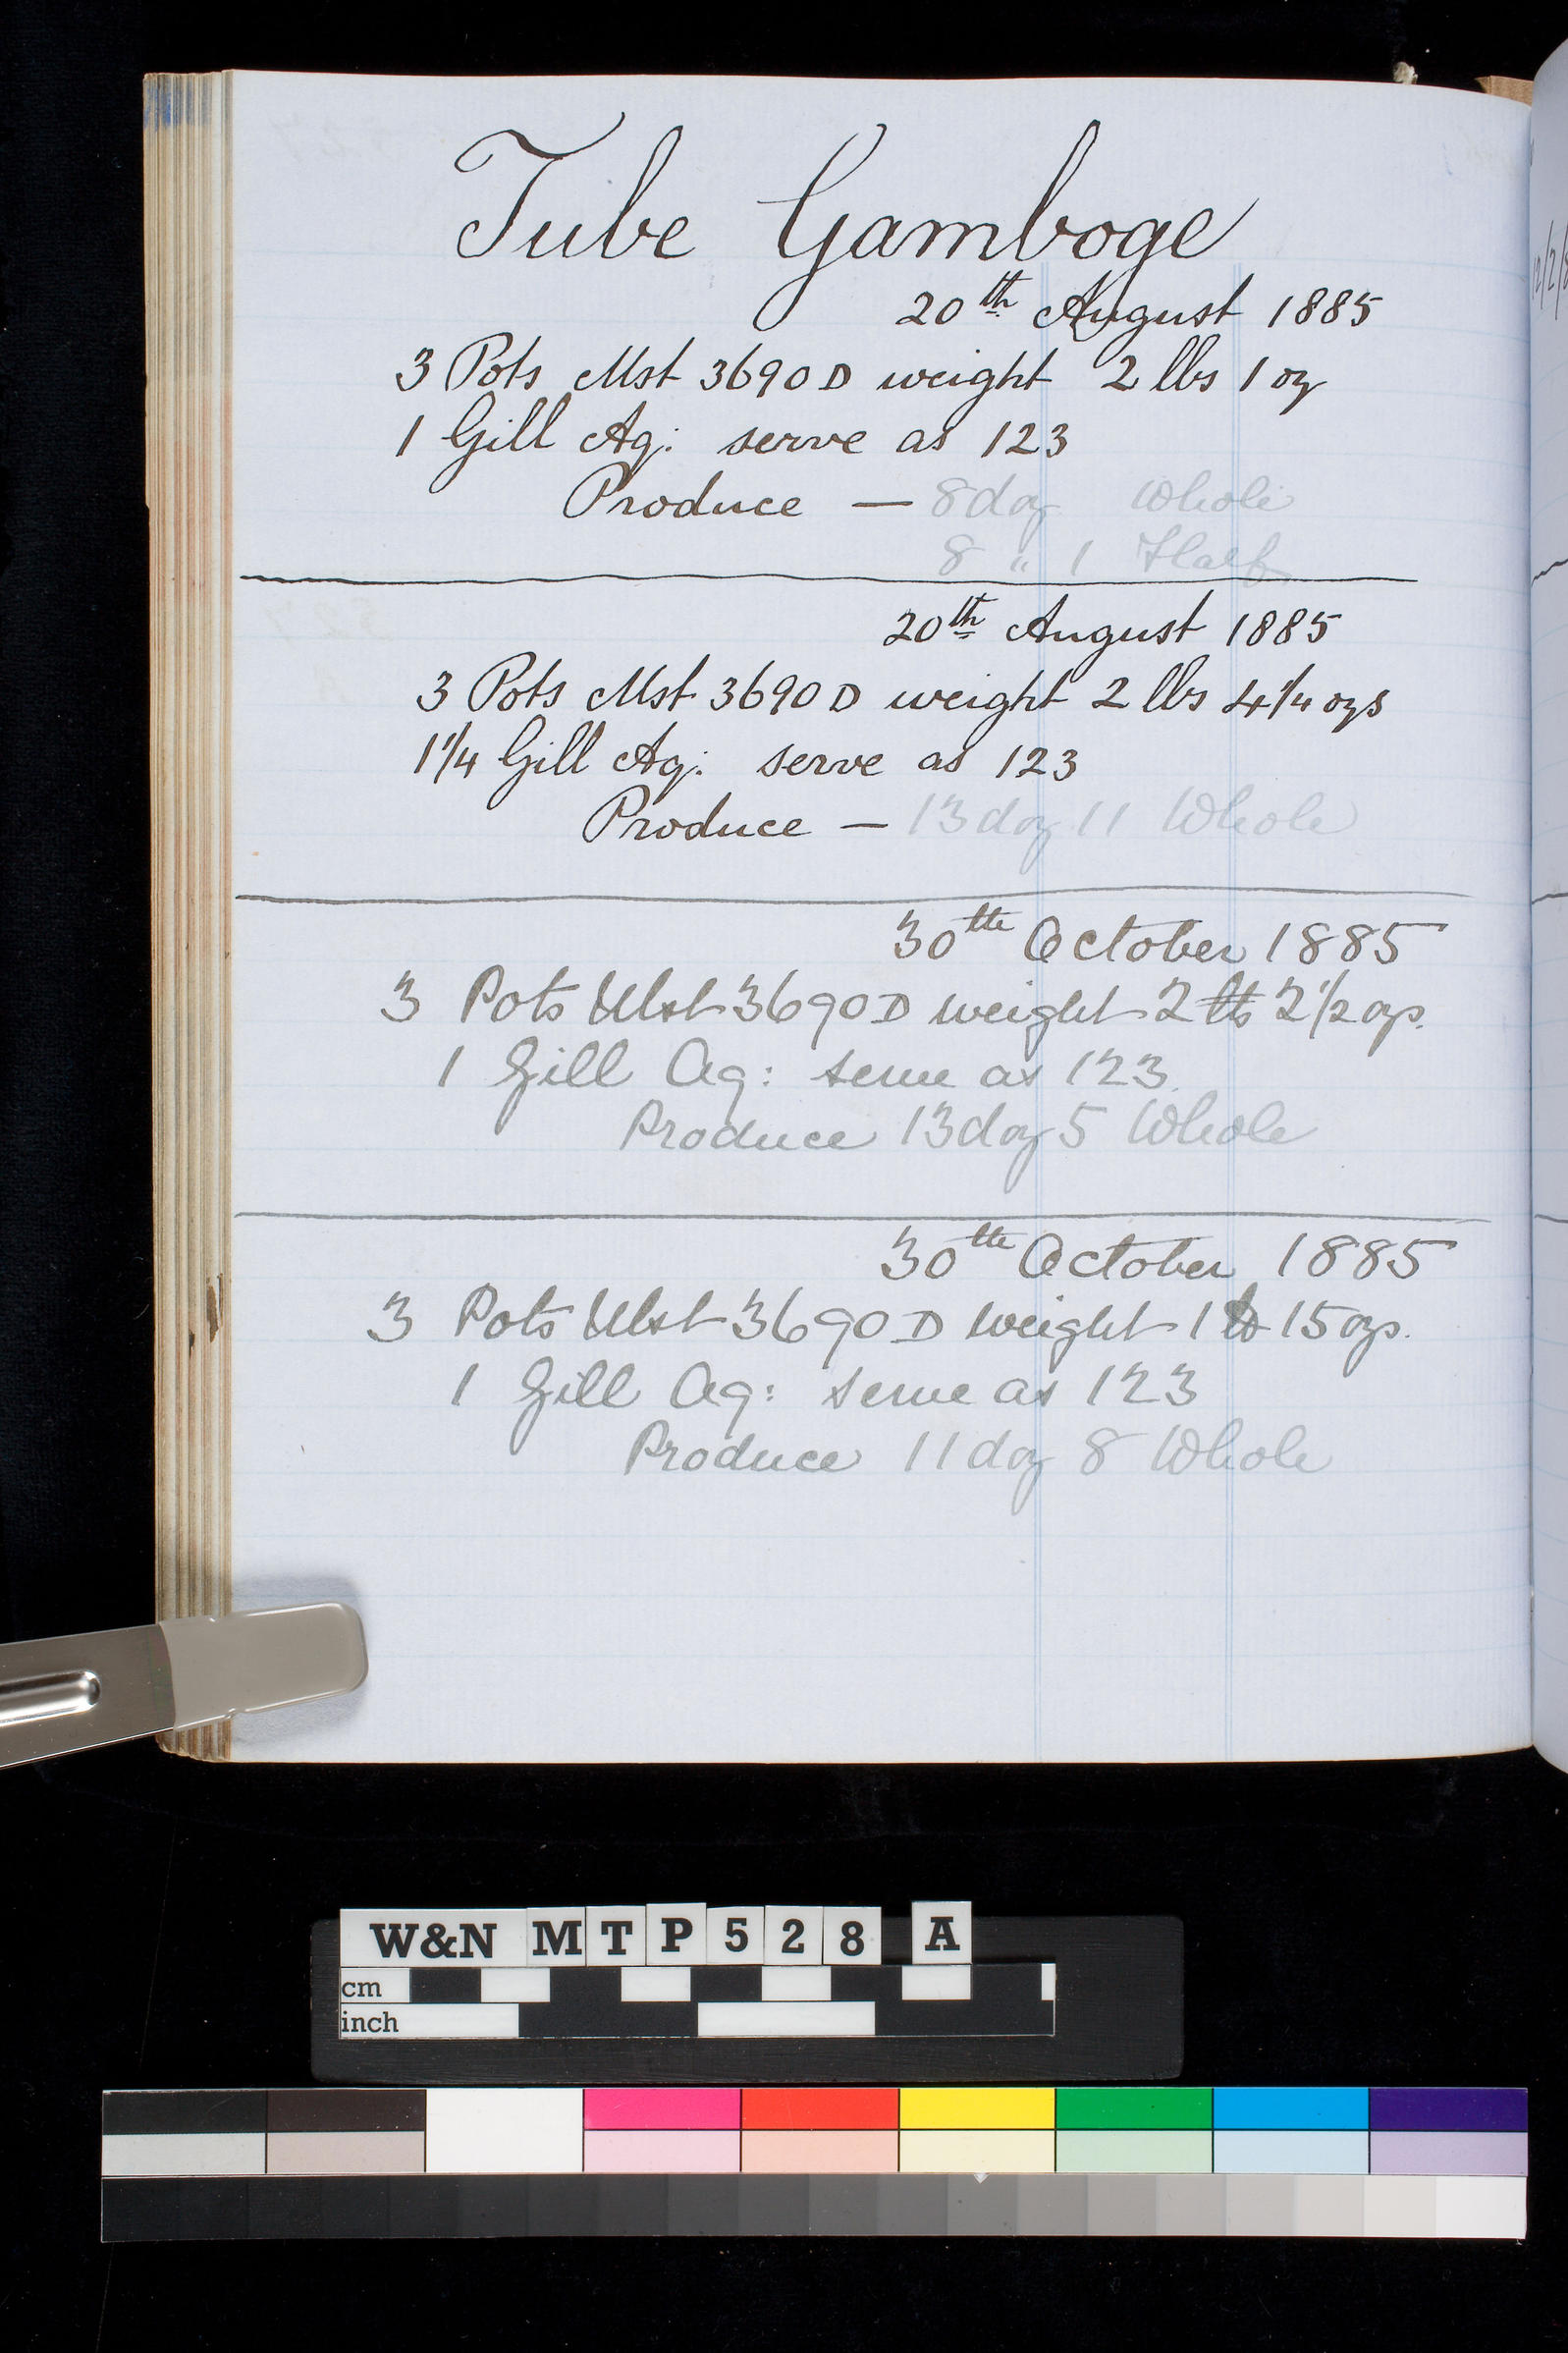 Tube Gamboge
20th August 1885
3 Pots Mst 3690 D weight 2 lbs 1 oz
1 Gill Aq: serve as 123
Produce — 8 doz Whole
8 " 1 Half
20th August 1885
3 Pots Mst 3690 D weight 2 lbs 4 1/4 ozs
1 1/4 Gill Aq: serve as 123
Produce — 13 doz 11 Whole
30th October 1885
3 Pots Mst 3690 D weight 2 lbs 2 1/2 ozs.
1 Gill Aq: serve as 123.
Produce 13 doz 5 Whole
30th October 1885
3 Pots Mst 3690 D weight 1 lb 15 ozs.
1 Gill Aq: serve as 123
Produce 11 doz 8 Whole
W&N MTP528 A
cm
inch